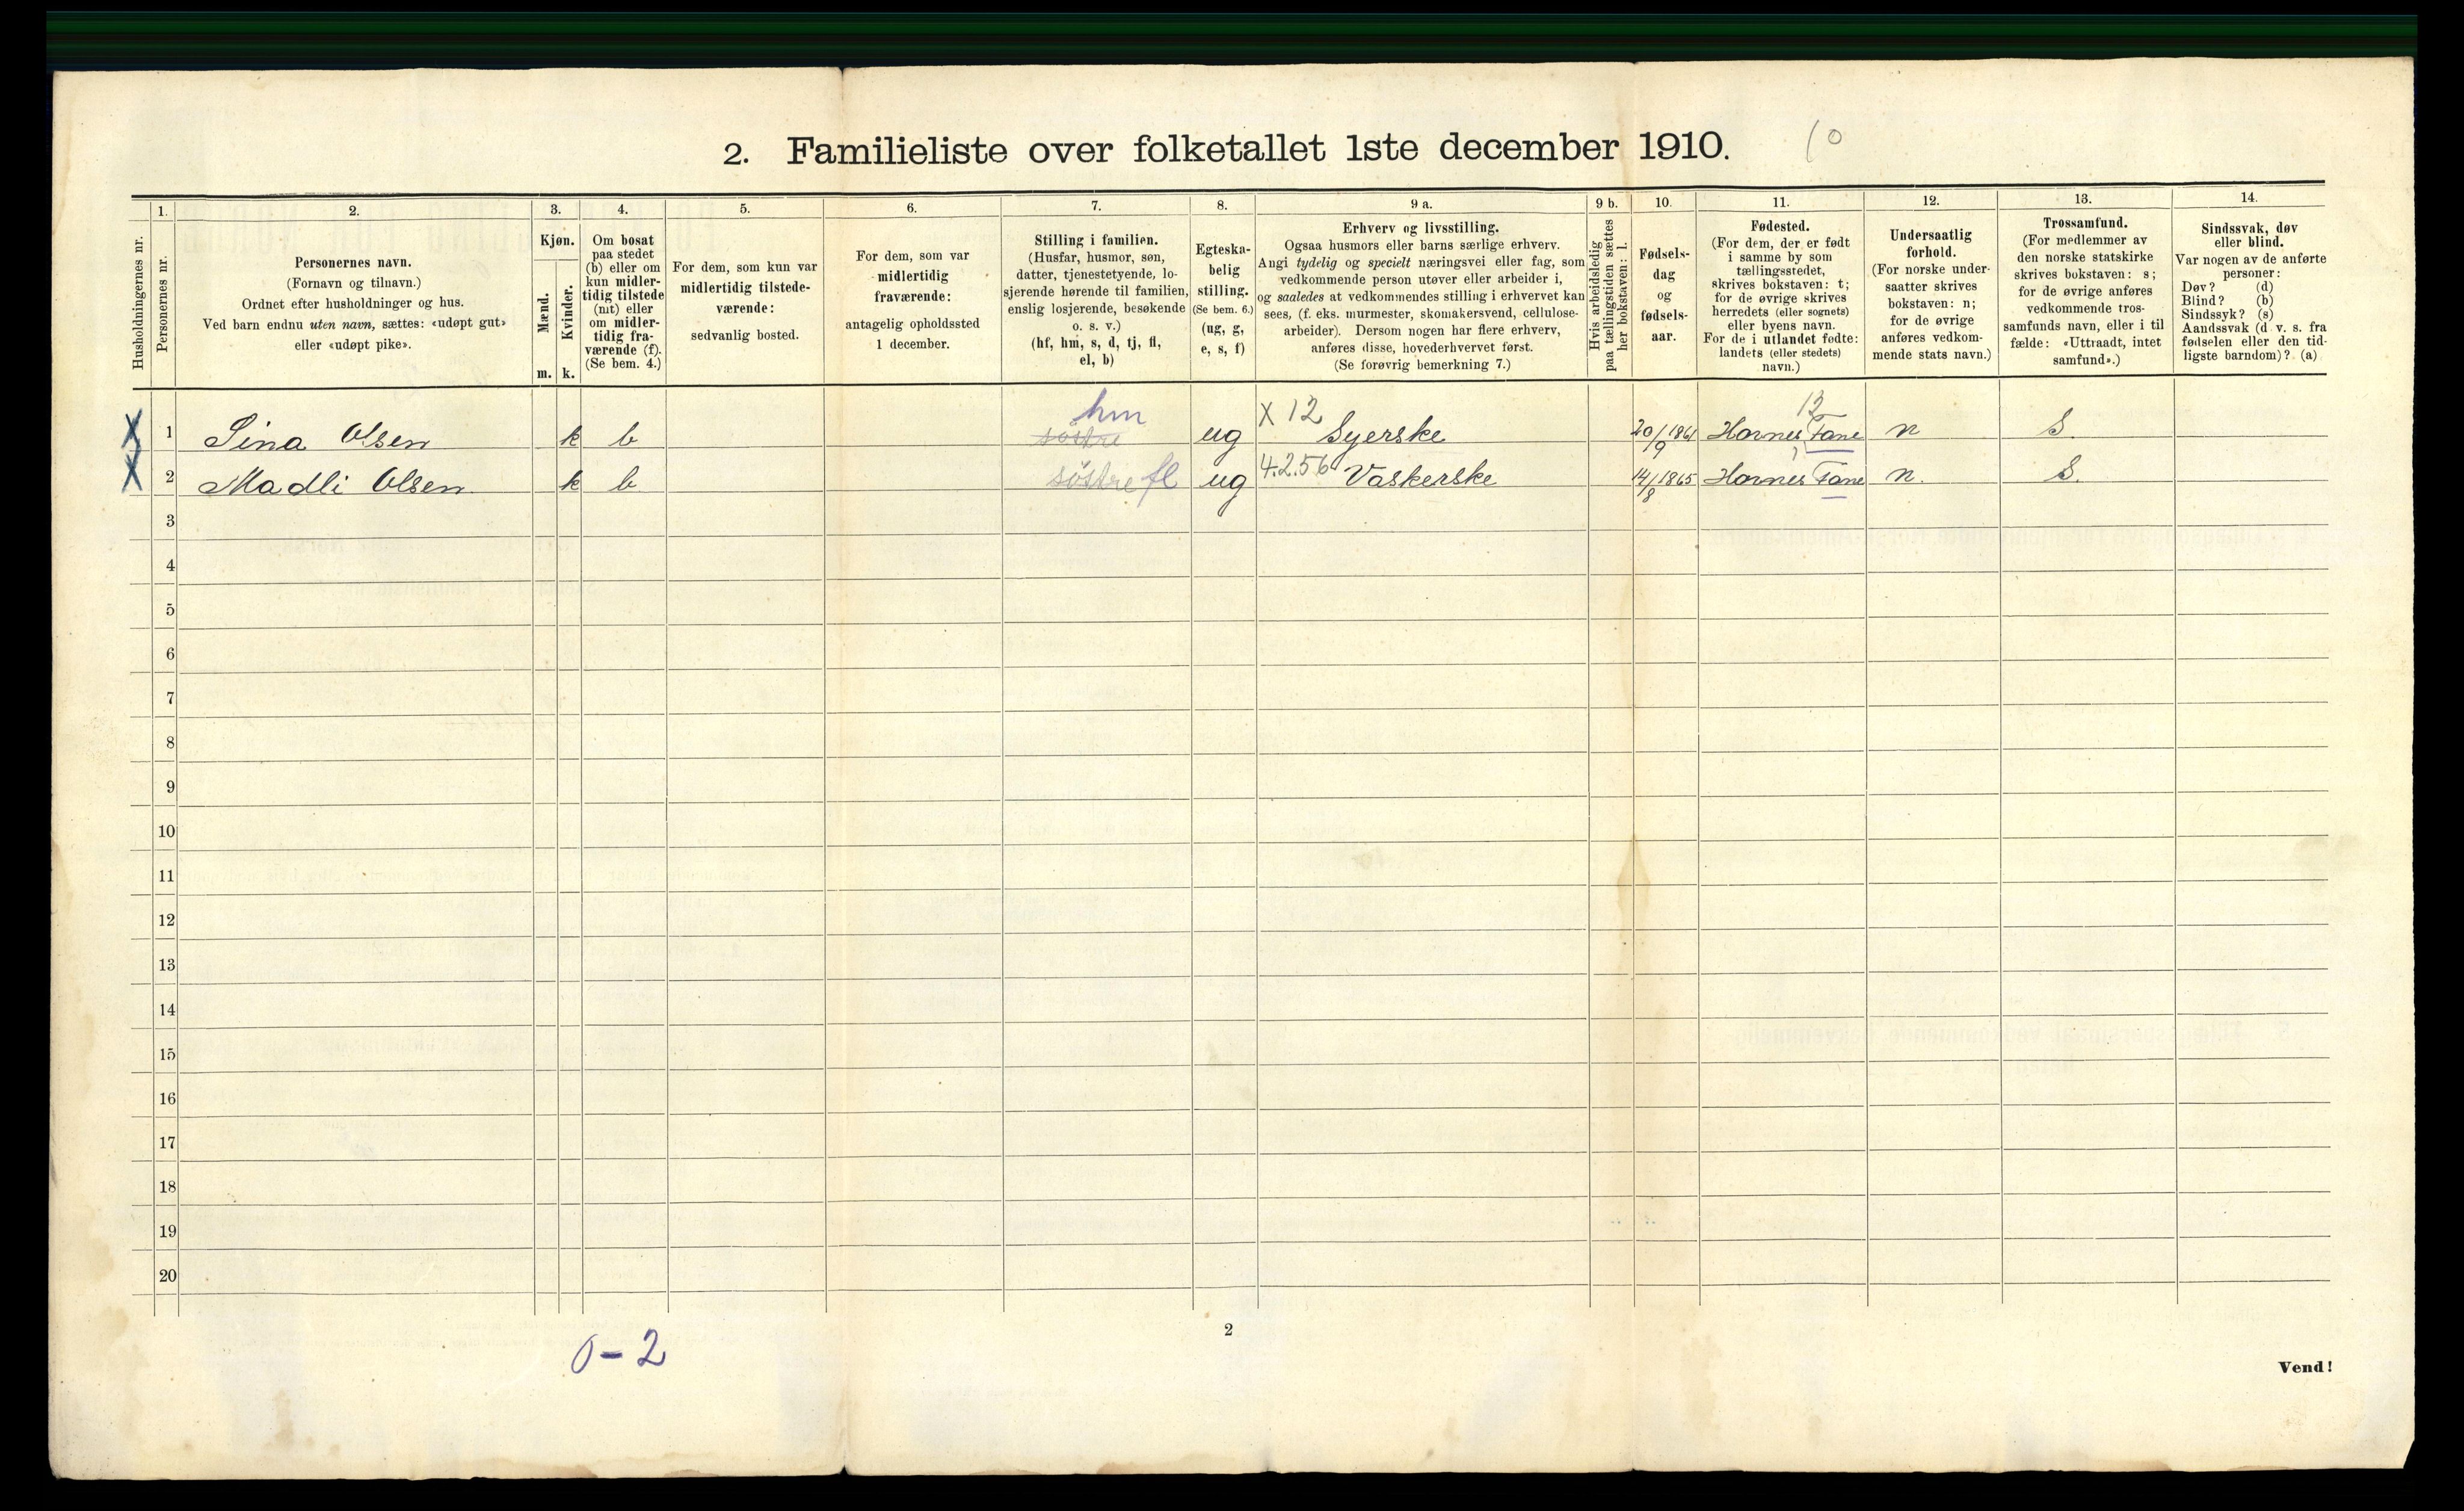 2. Familieliste over folketallet 1ste december 1910. 10
Husholdningernes nr.
1.
Personernes nr.
2.
Personernes navn.
(Fornavn og tilnavn.)
Ordnet efter husholdninger og hus.
Ved barn endnu uten navn, sættes: «udøpt gut»
eller «udøpt pike».
3.
Kjøn.
Mænd.
Kvinder.
m. k.
4.
Om bosat
paa stedet
(b) eller om
kun midler-
tidig tilstede
(mt) eller
om midler-
tidig fra-
værende (f).
(Se bem. 4.)
5.
For dem, som kun var
midlertidig tilstede-
værende:
sedvanlig bosted.
6.
For dem, som var
midlertidig
fraværende:
antagelig opholdssted
1 december.
7.
Stilling i familien.
(Husfar, husmor, søn,
datter, tjenestetyende, lo-
sjerende hørende til familien,
enslig losjerende, besøkende
o. s. v.)
(hf, hm, s, d, tj, fl,
el, b)
8.
Egteska-
belig
stilling.
(Se bem. 6.)
(ug, g,
e, s, f)
9 a.
Erhverv og livsstilling.
Ogsaa husmors eller barns særlige erhverv.
Angi tydelig og specielt næringsvei eller fag, som
vedkommende person utøver eller arbeider i,
og saaledes at vedkommendes stilling i erhvervet kan
sees, (f. eks. murmester, skomakersvend, cellulose-
arbeider). Dersom nogen har flere erhverv,
anføres disse, hovederhvervet først.
(Se forøvrig bemerkning 7.)
9 b.
Hvis arbeidsledig
paa tællingstiden sættes
her bokstaven: l.
10.
Fødsels-
dag
og
fødsels-
aar.
11.
Fødested.
(For dem, der er født
i samme by som
tællingsstedet,
skrives bokstaven: t;
for de øvrige skrives
herredets (eller sognets)
eller byens navn.
For de i utlandet fødte:
landets (eller stedets)
navn.)
12.
Undersaatlig
forhold.
(For norske under-
saatter skrives
bokstaven: n;
for de øvrige
anføres vedkom-
mende stats navn.)
13.
Trossamfund.
(For medlemmer av
den norske statskirke
skrives bokstaven: s;
for de øvrige anføres
vedkommende tros-
samfunds navn, eller i til
fælde: «Uttraadt, intet
samfund».)
14.
Sindssvak, døv
eller blind.
Var nogen av de anførte
personer:
Døv? (d)
Blind? (b)
Sindssyk? (s)
Aandssvak (d. v. s. fra
fødselen eller den tid-
ligste barndom)? (a)
hm X 12 12
X 1 Sina Olsen k b søstre ug Syerske 20/9 1861 Hornes, Fane n S.
X 2 Madli Olsen k b søstre fl ug 4.2.56 Vaskerske 14/8 1865 Hornes Fane n. S.
3
4
5
6
7
8
9
10
11
12
13
14
15
16
17
18
19
20
0-2
2
Vend!